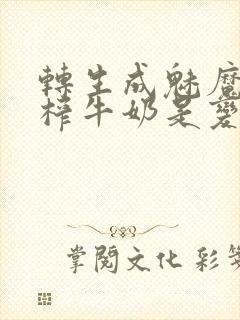 轉生成魅魔
榨牛奶是
掌閱文化 彩